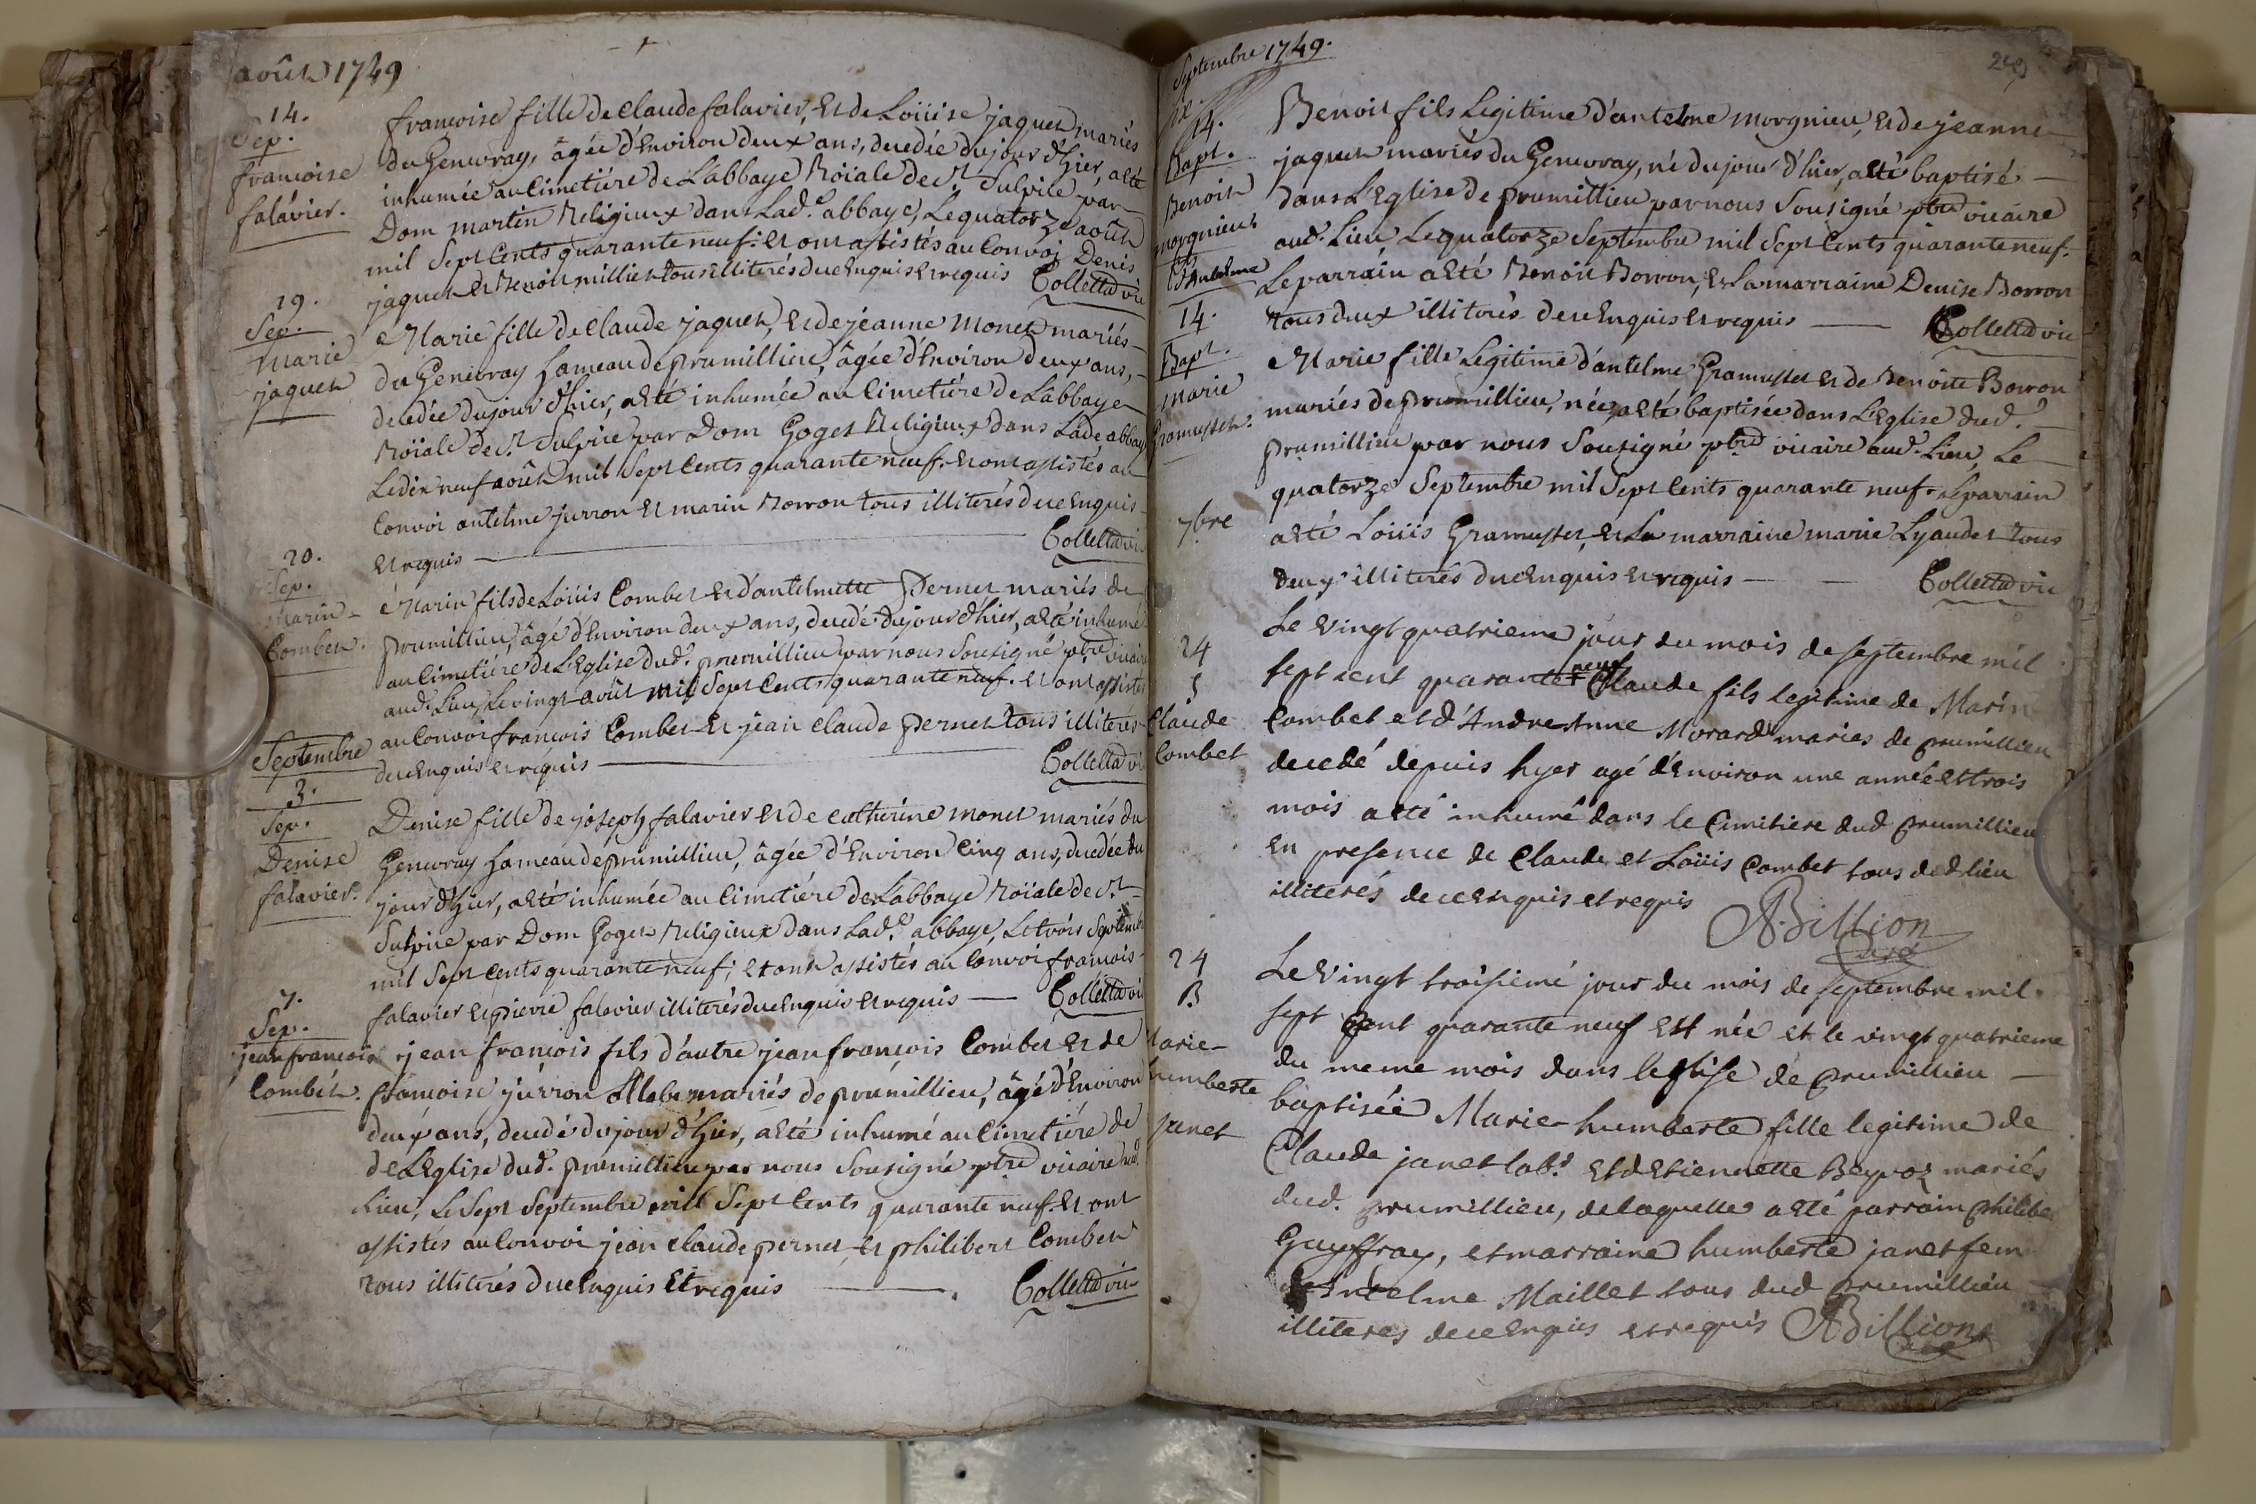 août 1749
14.
Sep.
françoise
falavier.
françoise fille de Claude falavier, Et de Loüise jaquet mariés
du Genevray, âgée d'Environ deux ans, decedée du jour d'hier, a Eté
inhumée au Cimetiére de L'abbaye Roiale de St. Sulpice par
Dom martin Religieux dans Lad.e abbaye, Le quatorze août
mil Sept Cents quarante neuf. Et ont assistés au Convoi Denis
jaquet et Benoit milliet tous illiterés de ce Enquis et requis Colletta vic
19.
Sep.
Marie
jaquet
Marie fille de Claude jaquet, Et de jeanne Monet mariés
du Genevray hameau de prumillieu, âgée d'Environ deux ans,
decedée du jour d'hier, a Eté inhumée au Cimetiére de L'abbaye
Roiale de St. Sulpice par Dom Goget Religieux dans Lade abbaye
Le dix neuf août mil Sept Cents quarante neuf. Et ont assistés au
Convoi antelme jurron Et marin Borron tous illiterés de ce Enquis
Et requis Colletta vic
20.
Sep.
Marin
Combet.
Marin fils de Loüis Combet Et d'antelmette Pernet mariés de
prumillieu, âgé d'Environ deux ans, decedé du jour d'hier, a Eté inhumé
au Cimetiére de L'Eglise dud. prumillieu par nous Sousigné ptre vicaire
aud. Lieu, Le vingt août mil Sept Cents quarante neuf. Et ont assistés
au Convoi françois Combet Et jean Claude pernet tous illiterés
de ce Enquis et requis Colletta vic
Septembre
3.
Sep.
Denise
falavier.
Denise fille de joseph falavier Et de Catherine monet mariés du
Genevray hameau de prumillieu, âgée d'Environ Cinq ans, decedée du
jour d'hier, a Eté inhumée au Cimetiére de L'abbaye Roïale de St.
Sulpice par Dom Goget Religieux dans Lad.e abbaye, Le trois Septembre
mil Sept Cents quarante neuf; Et ont assistés au Convoi françois
falavier Et pierre falavier illiterés de ce Enquis Et requis Colletta vic
7.
Sep.
jean françois
Combet.
jean françois fils d'autre jean françois Combet Et de
françoise jurron mariés de prumillieu, âgé d'Environ
deux ans, decedé du jour d'hier, a Eté inhumé au Cimetiére de
de L'Eglise dud. prumillieu par nous Sousigné ptre vicaire aud.
Lieu, Le Sept Septembre mil Sept Cents quarante neuf. Et ont
assistés au Convoi jean Claude pernet, Et philibert Combet
tous illiterés de ce Enquis Et requis Colletta vic
Septembre 1749.
14.
Bapt.
Benoit
morgnieu
d'Antelme
Benoit fils Legitime d'antelme morgnieu, Et de jeanne
jaquet mariés du Genevray, né du jour d'hier, a Eté baptisé
dans L'Eglise de prumillieu par nous Sousigné ptre vicaire
aud. Lieu Le quatorze Septembre mil Sept Cents quarante neuf.
Le parrain a Eté Benoit Borron, Et La marraine Denise Borron
tous deux illiterés de ce Enquis et requis Colletta vic
14.
Bapt.
Marie
Gramusset.
Marie fille Legitime d'antelme Gramusset Et de Benoite Borron
mariés de prumillieu, née, a Eté baptisée dans L'Eglise dud.
prumillieu par nous Sousigné ptre vicaire aud. Lieu, Le
quatorze Septembre mil Sept Cents quarante neuf. Le parrain
a Eté Loüis Gramusset, Et La marraine marie Lyaudet tous
deux illiterés de ce Enquis Et requis Colletta vic
7bre
24
S
Claude
Combet
Le Vingt quatrieme jour du mois de septembre mil
sept cent quarante neuf Claude fils legitime de Marin
Combet et d'Andreanne Morard mariés de prumillieu
decedé depuis hyer agé d'Environ une année et trois
mois a Eté inhumé dans le Cimitiere dud prumillieu
En presence de Claude et Loüis Combet tous dud lieu
illiterés de ce Enquis et requis
Billion
Curé
24
B
Marie
humberte
janet
Le Vingt troisiemé jour du mois de septembre mil
sept cent quarante neuf Est née et le vingt quatrieme
du meme mois dans leglise de prumillieu
baptisée Marie humberte fille legitime de
Claude janet lab.r Et d'Etiennette Beyvoz mariés
dud. prumillieu, de laquelle a Eté parrain philibe
Guyffray, et marraine humberte janet fem
d'Antelme Maillet tous dud prumillieu
illiteres de ce Enquis et requis Billion
Curé